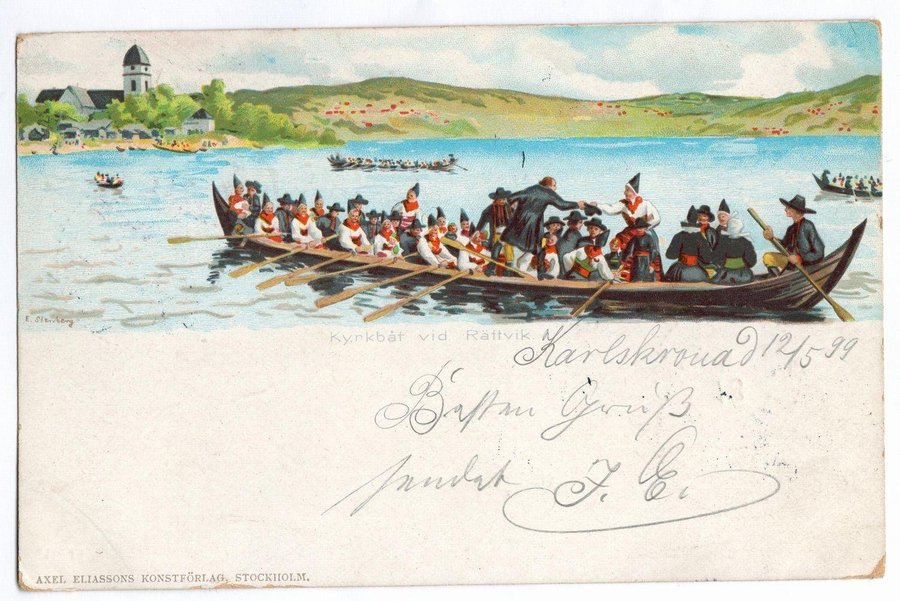 E. Stenberg
Kyrkbåt vid Rättvik.
Karlskrona d 12/5 99
Besten Gruß
sendet J. E.
AXEL ELIASSONS KONSTFÖRLAG, STOCKHOLM.